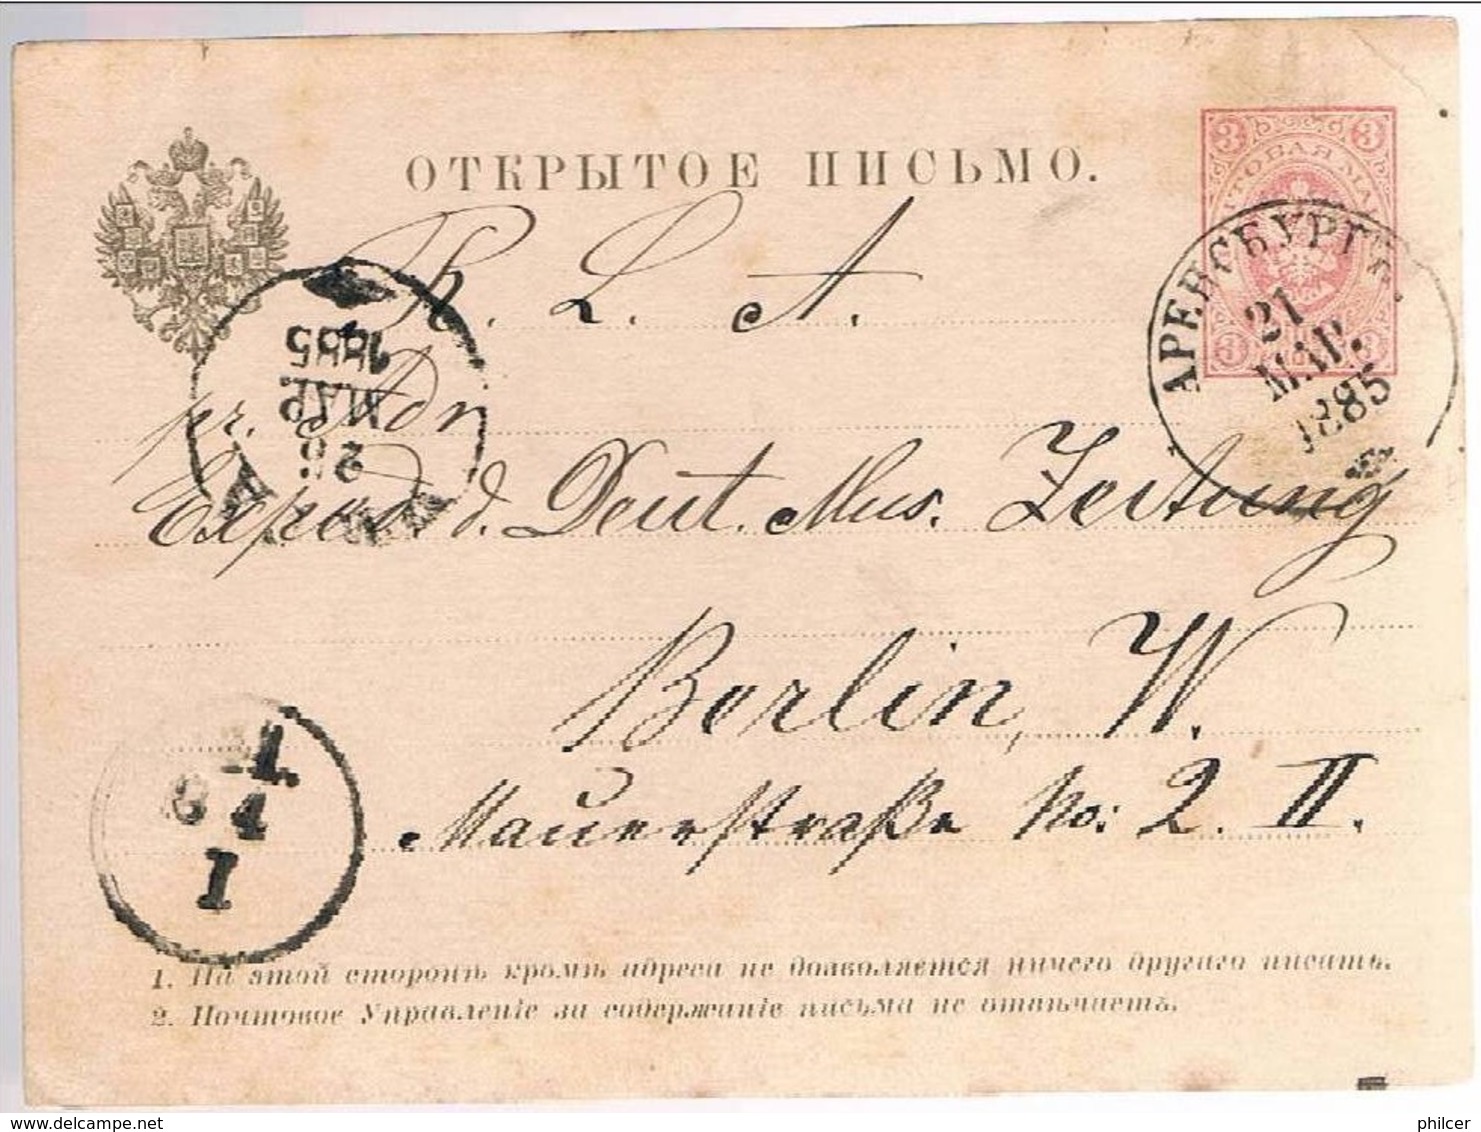 ОТКРЫТОЕ ПИСЬМО.
3 3
ПОЧТОВАЯ МАРКА
3 3
АРЕНСБУРГЪ.
21
МАР.
1885
R. L. A.
pr. Adr
Exped. d. Deut. Mus. Zeitung
Berlin, W.
Mauerstraße No: 2. II.
МАР.
1885
4
I
1. На этой сторонѣ кромѣ адреса не дозволяется ничего другаго писать.
2. Почтовое Управленіе за содержаніе письма не отвѣчаетъ.
philcer